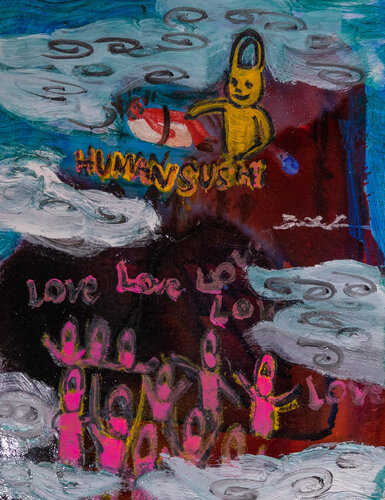 HUMAN SUSHI
LOVE LOVE LOVE
LOVE
LOVE